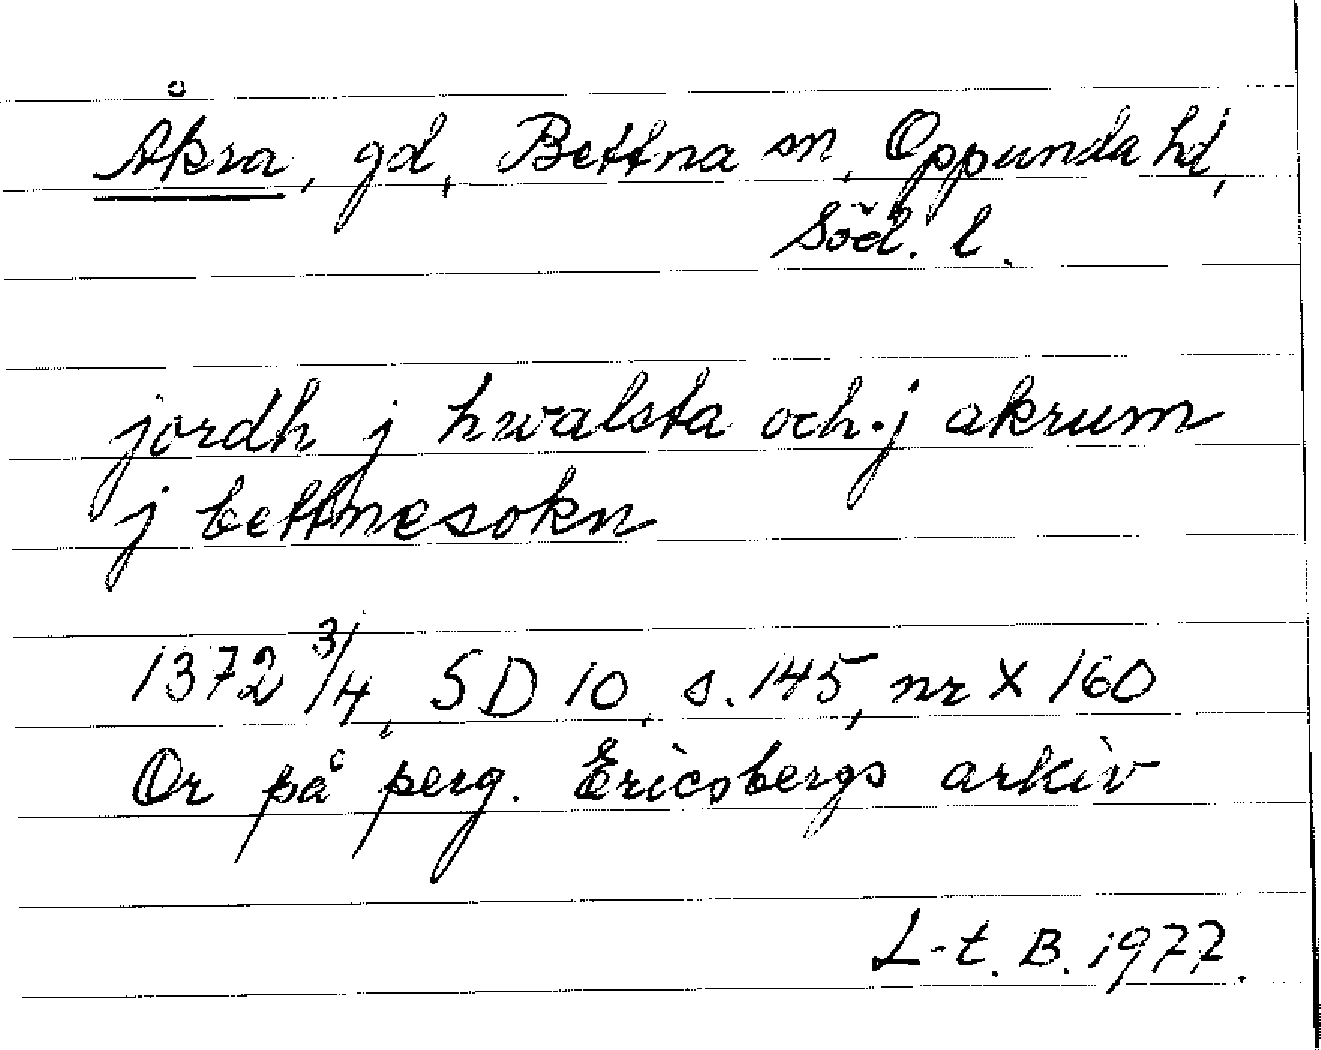 Åkra, gd, Bettna sn, Oppunda hd,
Söd. l.
jordh j hwalsta och j akrum
j bettnesokn
1372 3/4, SD 10, s. 145, nr X 160
Or på perg. Ericsbergs arkiv
L-t. B. 1977.